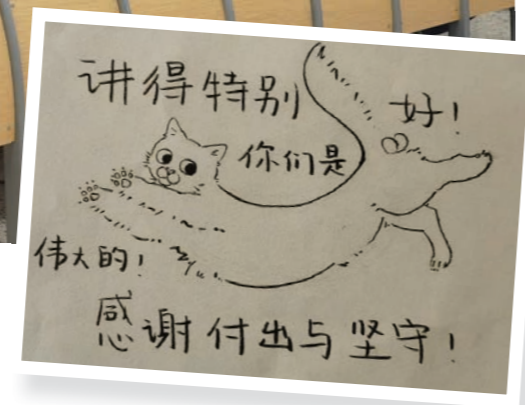 讲得特别好！
你们是
伟大的！
感谢付出与坚守！